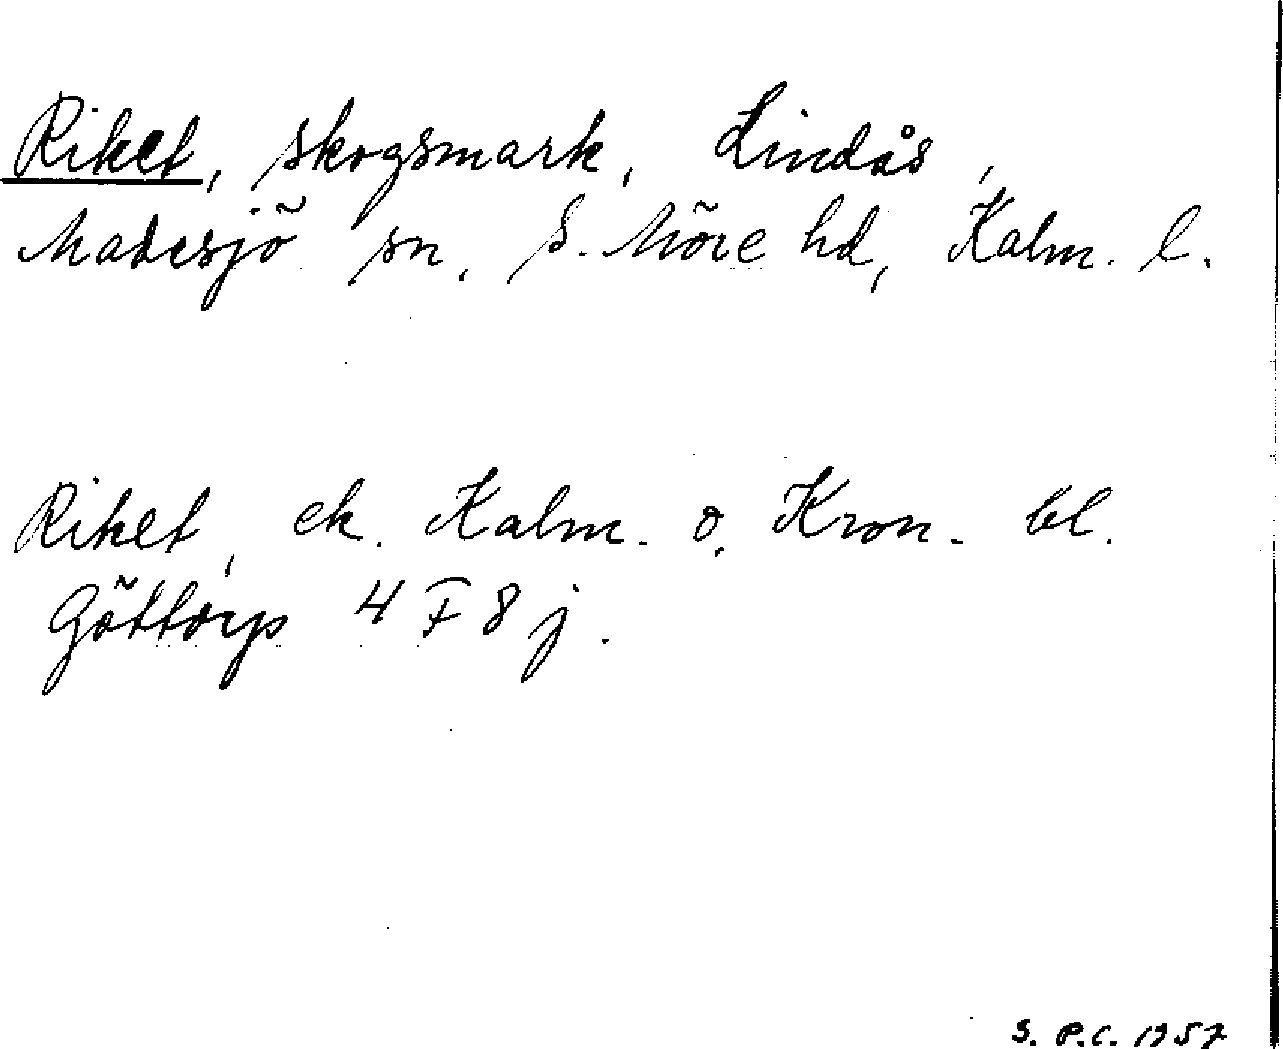 Riket, skogsmark, Lindås,
Madesjö sn, S. Möre hd, Kalm. l.
Riket, ek. Kalm. o. Kron. bl.
Göttorp 4 F 8 j.
S. P.C. 1957